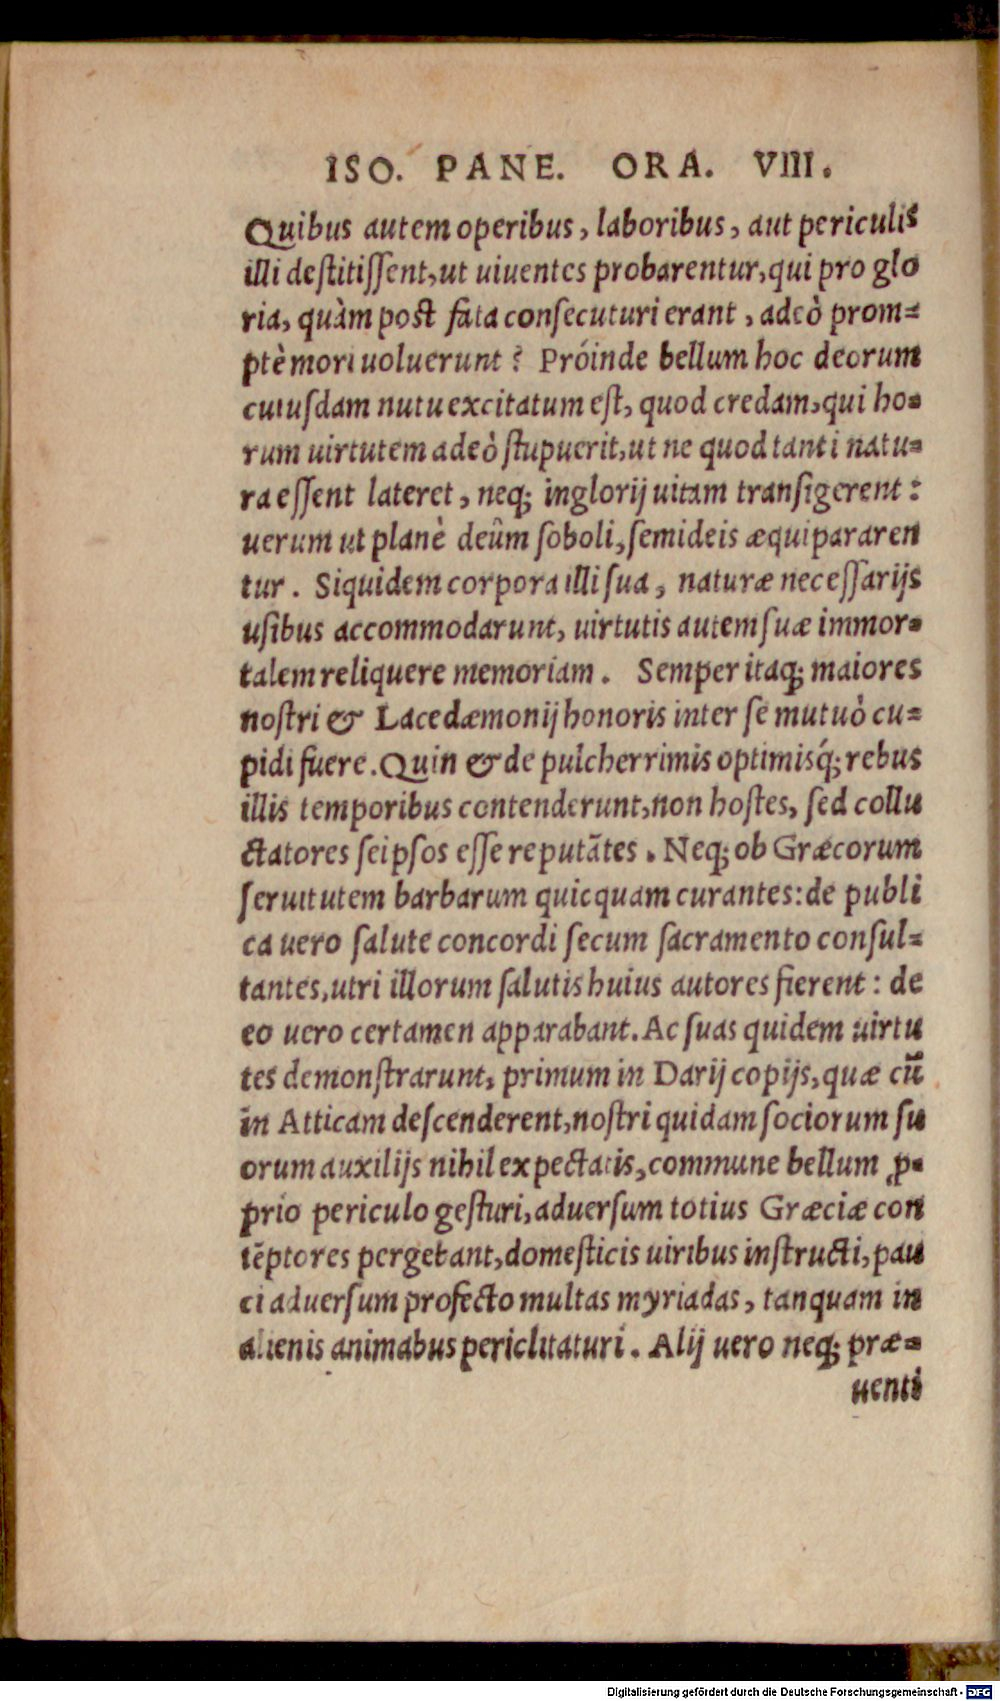 ISO. PANE. ORA. VIII.
Quibus autem operibus, laboribus, aut periculis
illi destitiſſent, ut uiuentes probarentur, qui pro glo
ria, quàm post fata consecuturi erant, adeò prom=
ptè mori uoluerunt? Próinde bellum hoc deorum
cuiuſdam nutu excitatum eſt, quod credam, qui ho=
rum uirtutem adeò ſtupuerit, ut ne quod tanti natu=
ra eſſent lateret, neq; inglorij uitam tranſigerent:
uerum ut planè deûm ſoboli, ſemideis æquipararen
tur. Siquidem corpora illi ſua, naturæ neceſſarijs
uſibus accommodarunt, uirtutis autem ſuæ immor=
talem reliquere memoriam. Semper itaq; maiores
noſtri & Lacedæmonij honoris inter ſe mutuò cu=
pidi fuere. Quin & de pulcherrimis optimisq́; rebus
illis temporibus contenderunt, non hoſtes, ſed collu
ctatores ſeipſos eſſe reputãtes. Neq; ob Græcorum
ſeruitutem barbarum quicquam curantes: de publi
ca uero ſalute concordi ſecum ſacramento conſul=
tantes, utri illorum ſalutis huius autores fierent: de
eo uero certamen apparabant. Ac ſuas quidem uirtu
tes demonſtrarunt, primum in Darij copijs, quæ cũ
in Atticam deſcenderent, noſtri quidam ſociorum ſu
orum auxilijs nihil expectatis, commune bellum ꝓ=
prio periculo geſturi, aduerſum totius Græciæ con
tẽptores pergebant, domeſticis uiribus inſtructi, pau
ci aduerſum profecto multas myriadas, tanquam in
alienis animabus periclitaturi. Alij uero neq; præ=
uenti
Digitalisierung gefördert durch die Deutsche Forschungsgemeinschaft - DFG